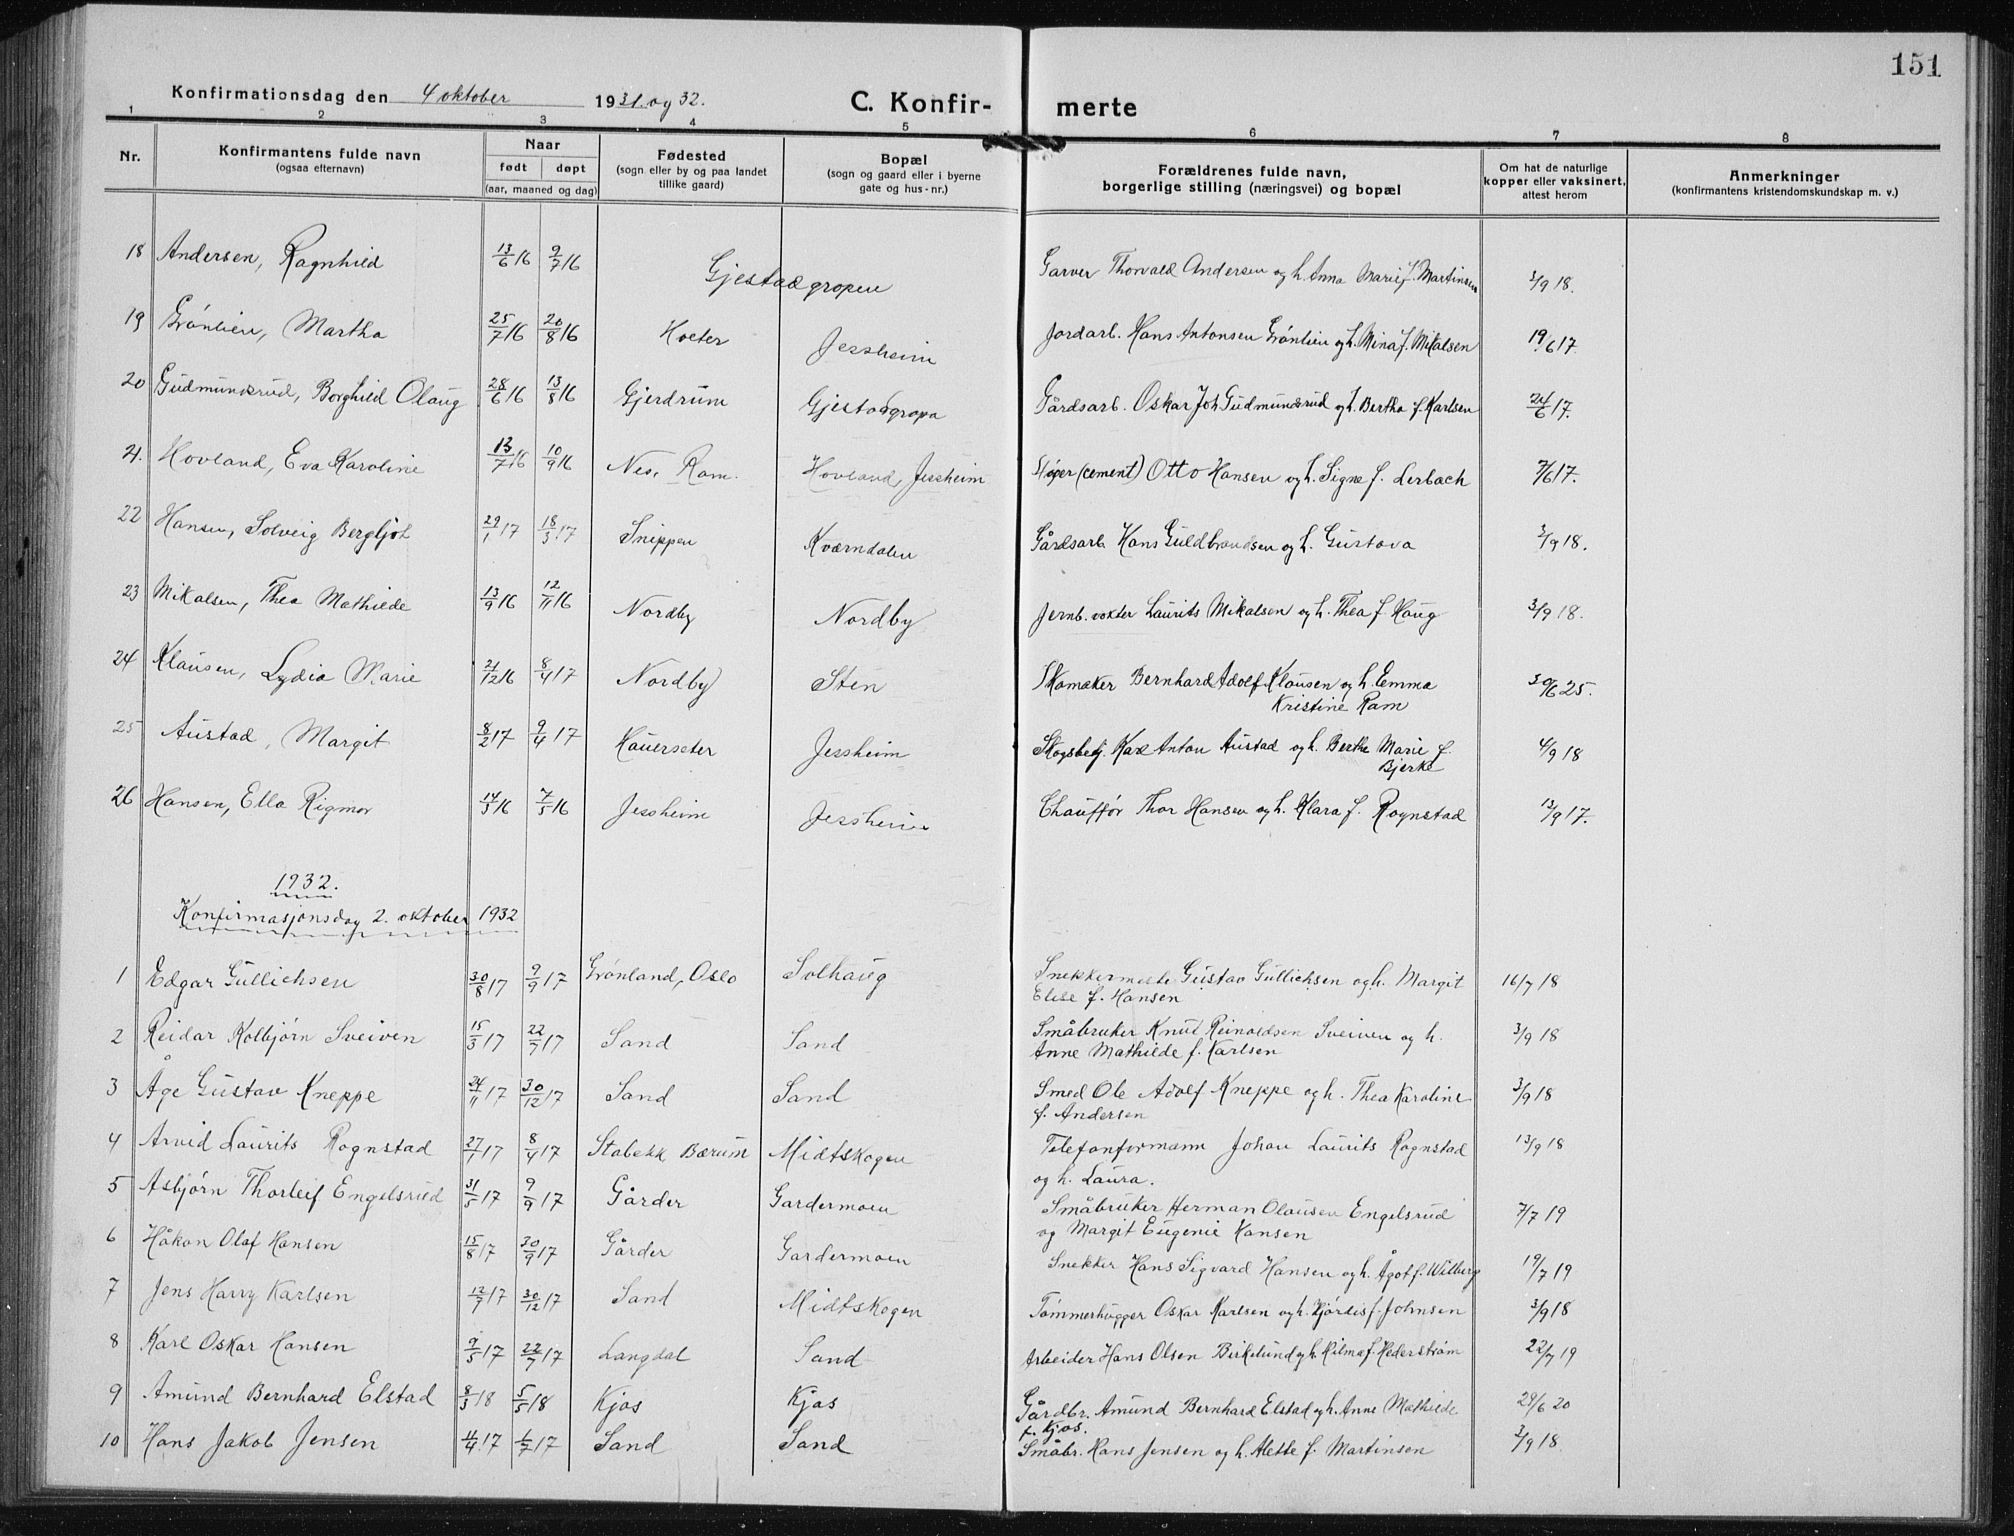 151
Konfirmationsdag den 4 oktober 1931. og 32.
C. Konfir- merte
1 2 3 4 5 6 7 8
Nr.
Konfirmantens fulde navn
(ogsaa efternavn)
Naar
født døpt
(aar, maaned og dag)
Fødested
(sogn eller by og paa landet
tillike gaard)
Bopæl
(sogn og gaard eller i byerne
gate og hus-nr.)
Forældrenes fulde navn,
borgerlige stilling (næringsvei) og bopæl
Om hat de naturlige
kopper eller vaksinert,
attest herom
Anmerkninger
(konfirmantens kristendomskundskap m. v.)
18 Andersen, Ragnhild 13/6 16 9/7 16 Gjestadgropen Garver Thorvald Andersen og h. Anna Marie f. Martinsen 3/9 18.
19 Grönlien, Martha 25/7 16 20/8 16 Hveter Jessheim Jordarb. Hans Antonsen Grönlien og h. Mina f. Mikalsen 19/6 17.
20 Gudmundsrud, Borghild Olaug 28/6 16 13/8 16 Gjerdrum Gjestadgropa Gårdsarb. Oskar Joh. Gudmundsrud og h. Bertha f. Karlsen 24/6 17.
21. Hovland, Eva Karoline 13/7 16 10/9 16 Nes, Rom. Hovland, Jessheim Støper (cement) Otto Hansen og h. Signe f. Lerbach 7/6 17.
22 Hansen, Solveig Bergljot 29/1 17 18/3 17 Snippen Kværndalen Gårdsarb Hans Guldbrandsen og h. Gustava 3/9 18.
23 Mikalsen, Thea Mathilde 13/9 16 12/11 16 Nordby Nordby Jernb. vokter Laurits Mikalsen og h. Thea f. Haug 3/9 18.
24 Klausen, Lydia Marie 21/12 16 8/4 17 Nordby Sten Skomaker Bernhard Adolf Klausen og h. Emma
Kristine Ram 30/6 25.
25 Austad, Margit 8/2 17 9/4 17 Hauerseter Jessheim Skogsbetj. Karl Anton Austad og h. Berthe Marie f.
Bjerke 4/9 18
26 Hansen, Ella Rigmor 14/3 16 7/5 16 Jessheim Jessheim Chauffør Thor Hansen og h. Klara f. Rognstad 13/9 17.
1932.
Konfirmasjonsdag 2. oktober 1932
1 Edgar Gullichsen 30/8 17 9/9 17 Grönland, Oslo Solhaug Snekkermester Gustav Gullichsen og h. Margit
Elise f. Hansen 16/7 18
2 Reidar Kolbjørn Sveiven 15/3 17 22/7 17 Sand Sand Småbruker Knut Reinoldsen Sveiven og h.
Anne Mathilde f. Karlsen 3/9 18
3 Åge Gustav Kneppe 24/11 17 30/12 17 Sand Sand Smed Ole Adolf Kneppe og h. Thea Karoline
f. Andersen 3/9 18
4 Arvid Laurits Rognstad 27/1 17 8/4 17 Stabekk Bærum Midtskogen Telefonformann Johan Laurits Rognstad
og h. Laura. 13/9 18
5 Asbjørn Thorleif Engelsrud 31/5 17 9/9 17 Gårder Gardermoen Småbruker Herman Olausen Engelsrud
og Margit Eugenie Hansen 7/7 19
6 Håkon Olaf Hansen 15/8 17 30/9 17 Gårder Gardermoen Snekker Hans Sigvard Hansen og h. Ågot f. Wilberg 19/7 19
7 Jens Harry Karlsen 12/7 17 30/12 17 Sand Midtskogen Tømmerhugger Oskar Karlsen og h. Hjördis f. Johnsen 3/9 18
8 Karl Oskar Hansen 9/5 17 22/7 17 Langdal Sand Arbeider Hans Olsen Birkelund og h. Hilma f. Hederström 22/7 19
9 Amund Bernhard Elstad 8/3 18 5/5 18 Kjos Kjos Gårdbr. Amund Bernhard Elstad og h. Anne Mathilde
f. Kjos. 29/6 20
10 Hans Jakob Jensen 11/4 17 1/7 17 Sand Sand Småbr. Hans Jensen og h. Alette f. Martinsen 3/9 18.